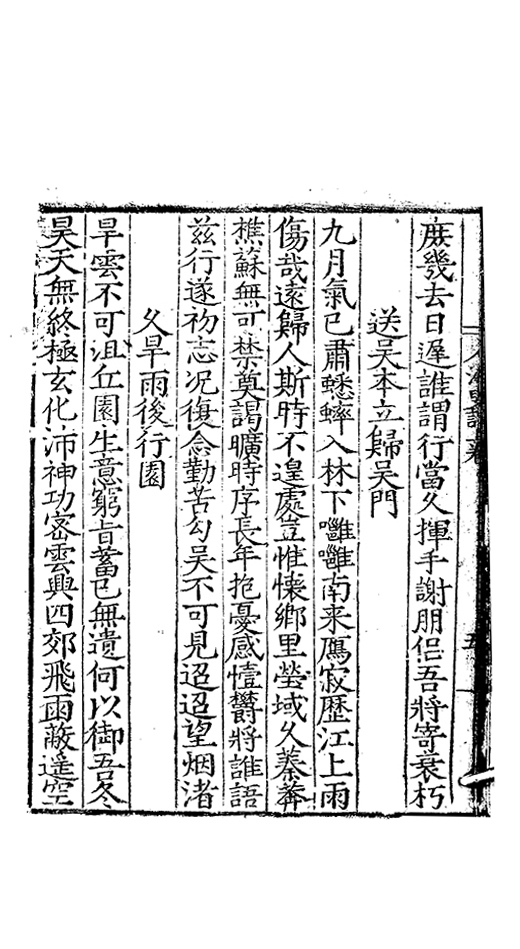 庻幾去日遲誰謂行當久揮手謝朋侣吾將寄衰朽
送吴本立歸吴門
九月氣已肅蟋蟀入林下雝雝南来鴈寂歷江上雨
傷哉遠歸人斯時不遑處豈惟懷鄉里塋域久蓁莽
樵蘇無可禁奠謁曠時序長年抱憂感慥欝將誰語
茲行遂初志况復念勤苦勾吴不可見迢迢望烟渚
久旱雨後行園
旱雲不可沮丘園生意窮旨蓄已無遺何以御吾冬
昊天無終極玄化沛神功密雲興四郊飛雨蔽遥空
五